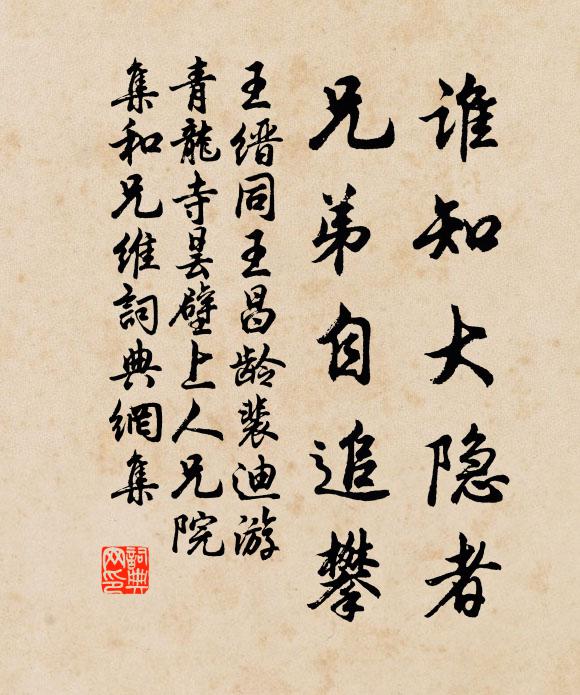 谁知大隐者
兄弟自追攀
王缙同王昌龄裴迪游
青龍寺昙壁上人兄院
集和兄维詞典網集
詞典
网印